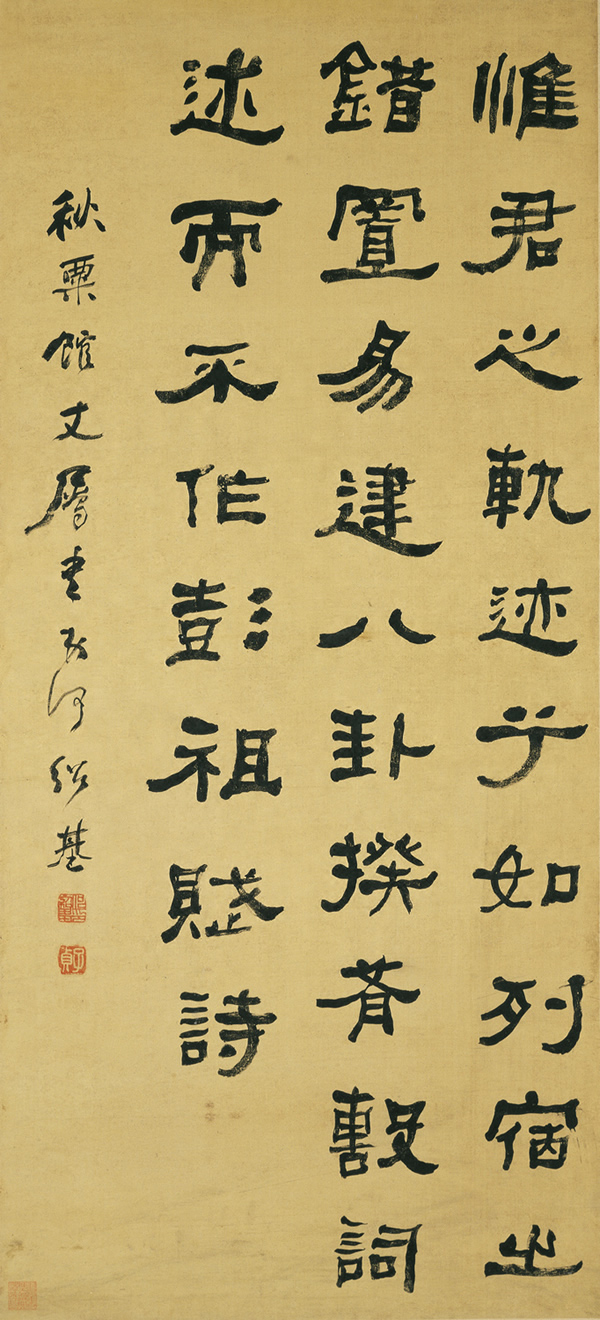 惟君之軌迹兮如列宿之
錯置易建八卦揆肴毄詞
述而不作彭祖賦詩
秋粟館丈屬書 何紹基
子貞